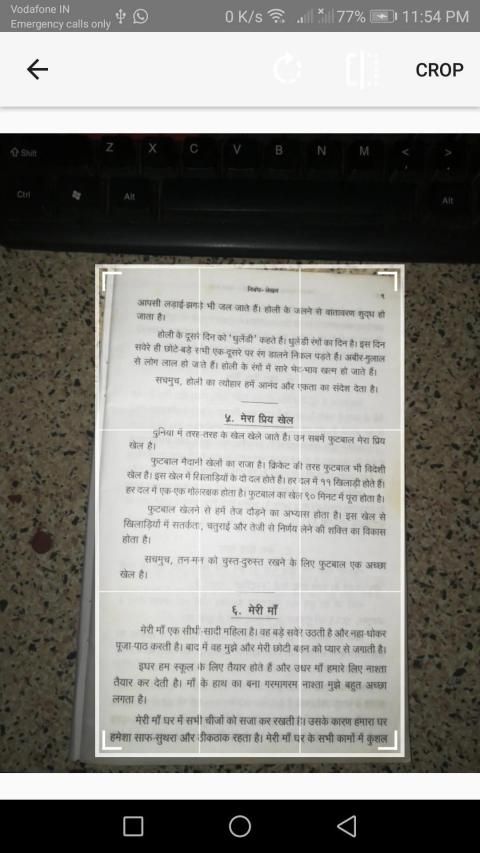 Vodafone IN
Emergency calls only
0 K/s
77%
11:54 PM
CROP
Shift
Z X C V B N M < >
Ctrl
Alt
Alt
निबंध-लेखन
९
आपसी लड़ाई-झगड़े भी जल जाते हैं। होली के जलने से वातावरण शुद्ध हो
जाता है।
होली के दूसरे दिन को 'धुलेंडी' कहते हैं। धुलेंडी रंगों का दिन है। इस दिन
सवेरे ही छोटे-बड़े सभी एक-दूसरे पर रंग डालने निकल पड़ते हैं। अबीर-गुलाल
से लोग लाल हो जाते हैं। होली के रंगों में सारे भेद-भाव खत्म हो जाते हैं।
सचमुच, होली का त्योहार हमें आनंद और एकता का संदेश देता है।
५. मेरा प्रिय खेल
दुनिया में तरह-तरह के खेल खेले जाते हैं। उन सबमें फुटबाल मेरा प्रिय
खेल है।
फुटबाल मैदानी खेलों का राजा है। क्रिकेट की तरह फुटबाल भी विदेशी
खेल है। इस खेल में खिलाड़ियों के दो दल होते हैं। हर दल में ११ खिलाड़ी होते हैं।
हर दल में एक-एक गोलरक्षक होता है। फुटबाल का खेल ९० मिनट में पूरा होता है।
फुटबाल खेलने से हमें तेज दौड़ने का अभ्यास होता है। इस खेल से
खिलाड़ियों में सतर्कता, चतुराई और तेजी से निर्णय लेने की शक्ति का विकास
होता है।
सचमुच, तन-मन को चुस्त-दुरुस्त रखने के लिए फुटबाल एक अच्छा
खेल है।
६. मेरी माँ
मेरी माँ एक सीधी-सादी महिला है। वह बड़े सवेरे उठती है और नहा-धोकर
पूजा-पाठ करती है। बाद में वह मुझे और मेरी छोटी बहन को प्यार से जगाती है।
इधर हम स्कूल के लिए तैयार होते हैं और उधर माँ हमारे लिए नाश्ता
तैयार कर देती है। माँ के हाथ का बना गरमागरम नाश्ता मुझे बहुत अच्छा
लगता है।
मेरी माँ घर में सभी चीजों को सजा कर रखती है। उसके कारण हमारा घर
हमेशा साफ-सुथरा और ठीकठाक रहता है। मेरी माँ घर के सभी कामों में कुशल